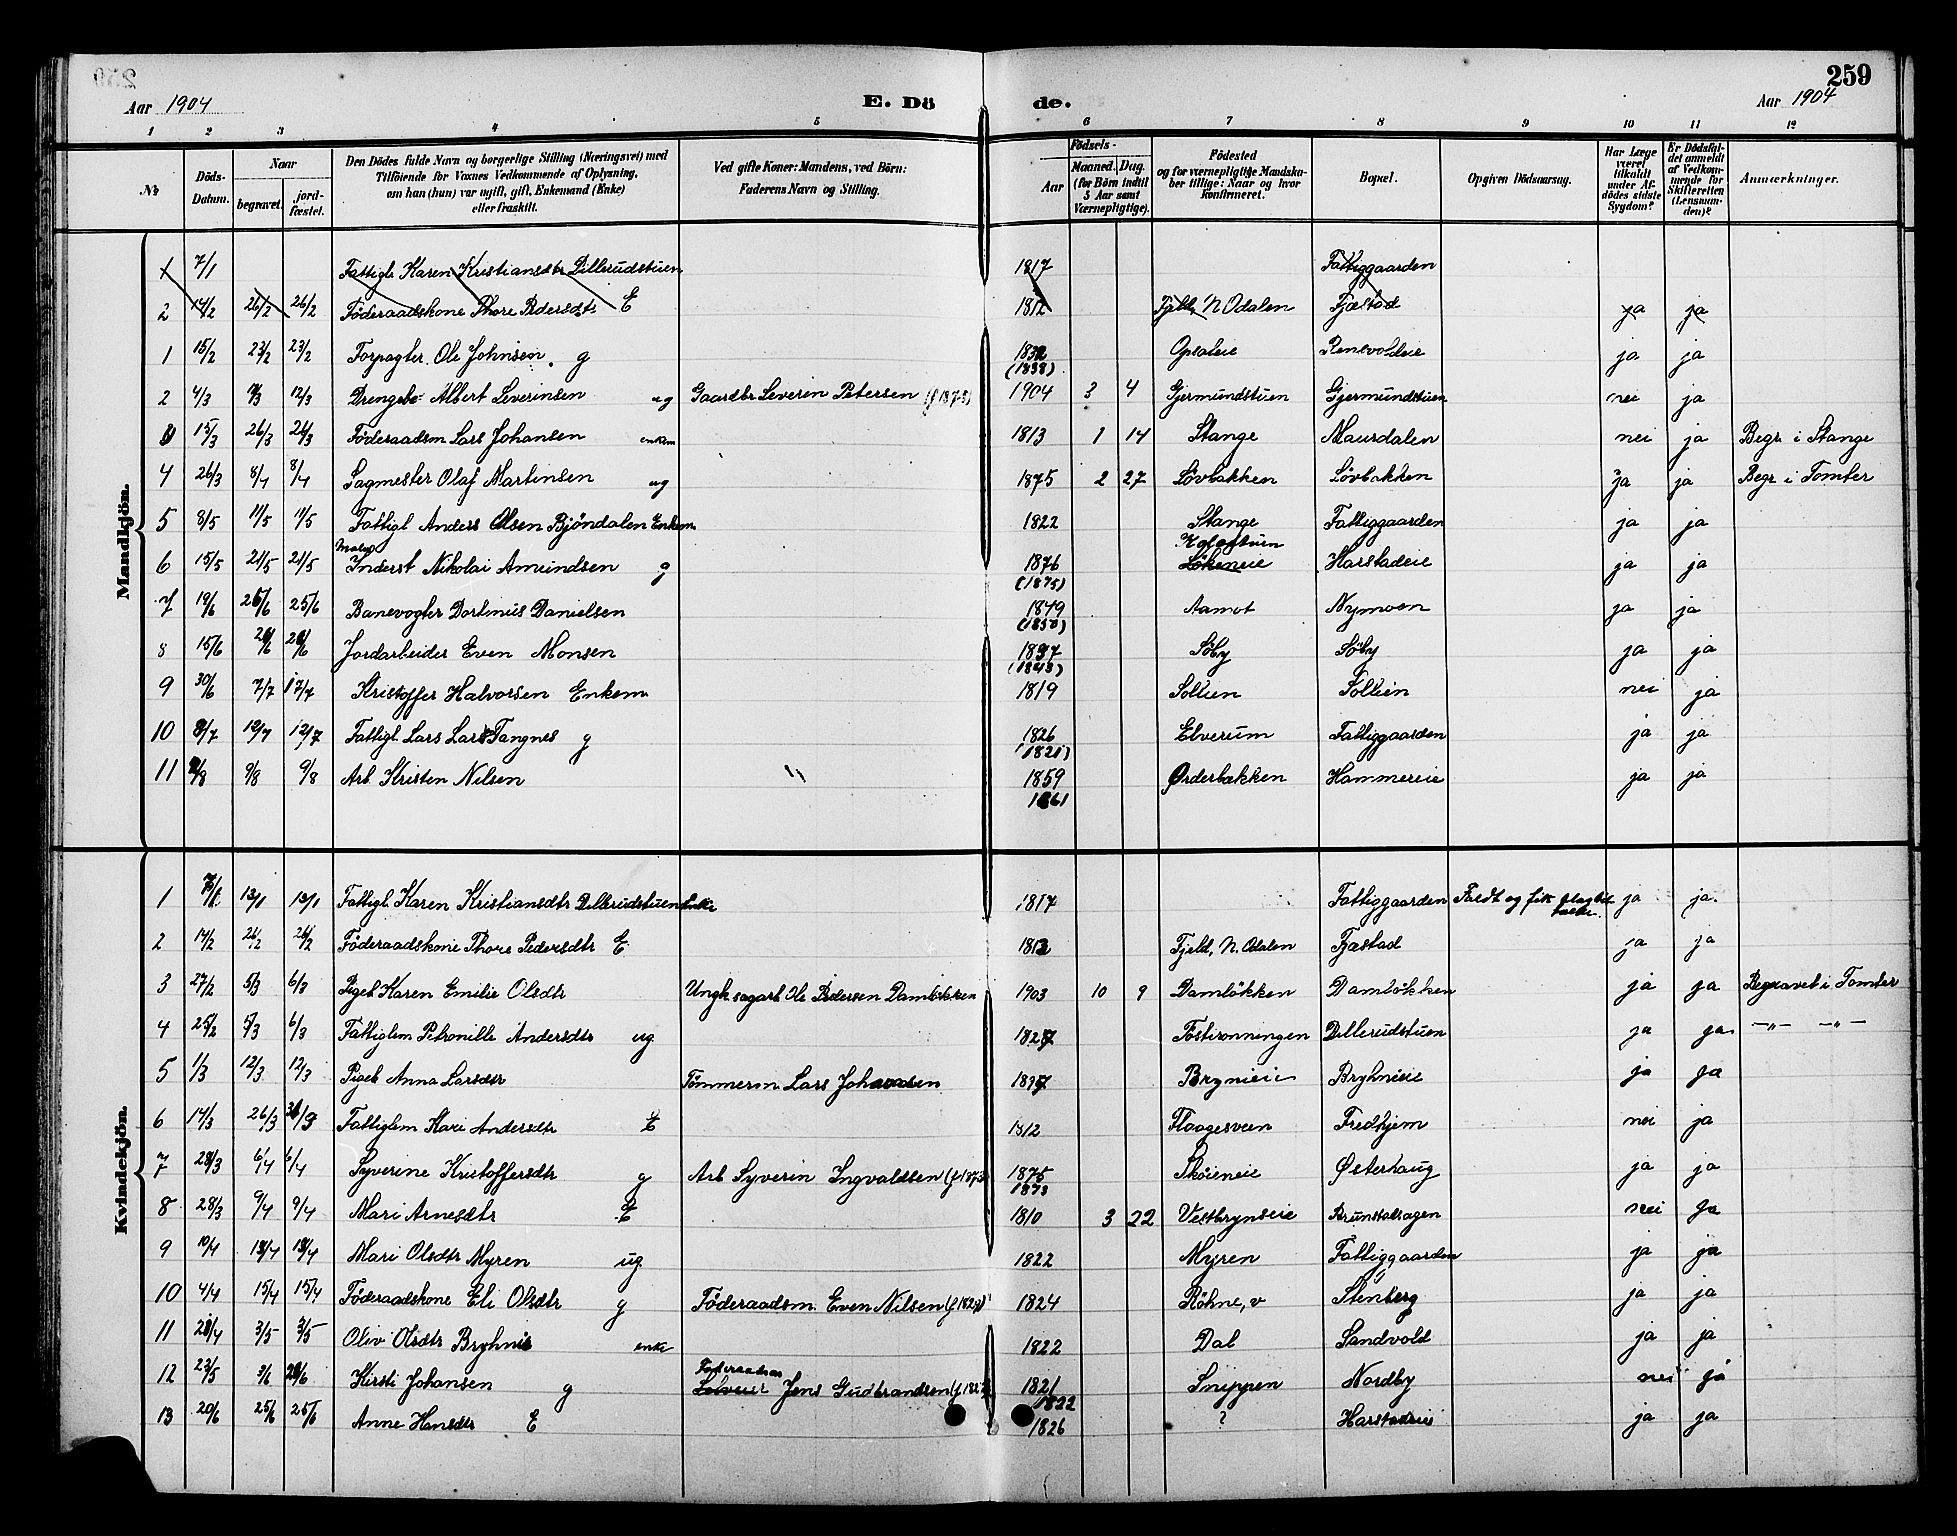 259
Aar 1904 E. Dö de. Aar 1904
1 2 3 4 5 6 7 8 9 10 11 12
No
Döds-Datum.
Naar begravet. jordfæstet.
Den Dödes fulde Navn og borgerlige Stilling (Næringsvei) med Tilföiende for Voxnes Vedkommende af Oplysning, om han (hun) var ugift, gift, Enkemand (Enke) eller fraskilt.
Ved gifte Koner: Mandens, ved Börn: Faderens Navn og Stilling.
Födsels- Aar Maaned. Dag. (for Börn indtil 5 Aar samt Værnepligtige).
Födested og for værnepligtige Mandskaber tillige: Naar og hvor konfirmeret.
Bopæl.
Opgiven Dödsaarsag.
Har Læge været tilkaldt under Afdödes sidste Sygdom?
Er Dödsfaldet anmeldt af Vedkommende for Skifteretten (Lensmanden)?
Anmærkninger.
Mandkjön.
1 7/1 Fattigl Karen Kristiansdtr Dillerudstuen 1817 Fattiggaarden
2 14/2 26/2 26/2 Föderaadskone Thore Pedersdtr E 1812 Fjeld, N Odalen Fjæstad ja ja
1 15/2 23/2 23/2 Forpagter Ole Johnsen g 1832 Opsaleie Renevoldeie ja ja
(1838)
2 4/3 12/3 Drengeb. Albert Severinsen ug Gaardbr Severin Petersen 1904 3 4 Gjermundstuen Gjermundstuen nei ja
15/3 26/3 26/3 Föderaadsm Lars Johansen enkem 1813 1 14 Stange Maurdalen nei ja Begr i Stange
4 26/3 8/4 8/4 Sagmester Olaf Martinsen ug 1875 2 27 Lövbakken Lövbakken ja ja Begr i Tomter
5 8/5 11/5 11/5 Fattigl Anders Olsen Bjöndalen Enkem 1822 Stange Fattiggaarden ja ja
6 15/5 21/5 21/5 Inderst Nikolai Amundsen g 1876 Lökeneie Harstadeie ja ja
(1875)
7 19/6 25/6 25/6 Banevogter Dortinus Danielsen 1849 Aamot Nymoen ja ja
(1850)
8 15/6 Jordarbeider Even Monsen Söby Söby ja ja
(1843)
9 30/6 7/7 17/7 Kristoffer Halvorsen Enkem 1819 Sollien Sollien nei ja
10 8/7 12/7 12/7 Fattigl Lars Lars Tangnes g 1826 Elverum Fattiggaarden ja ja
(1821)
11 2/8 9/8 9/8 Arb Kristen Nilsen " 1859 Ørderbakken Hammereie ja ja
1861
Kvindekjön.
1 7/1 13/1 13/1 Fattigl Karen Kristiansdtr Dillerudstuen Enke 1817 Fattiggaarden Faldt og fik ja ja.
2 14/2 26/2 26/2 Föderaadskone Thore Pedersdtr E 1812 Fjeld, N. Odalen Fjæstad ja ja
3 27/2 5/3 6/3 Pigeb Karen Emilie Olsdtr Ungk sagarb Ole Pedersen Damlökken 1903 10 9 Damlökken Damlökken ja ja Begravet i Tomter
4 25/2 5/3 6/3 Fattiglem Petronille Andersdtr ug 1827 Fostirønningen Dillerudstuen ja ja. —"— —"—
5 1/3 12/3 12/3 Pigeb Anna Larsdtr Tömmerm Lars Johansen 1897 Brynieie Bryhnieie ja ja
6 14/3 26/3 26/3 Fattiglem Kari Andersdtr E 1812 Flaagesveen Fredhjem nei ja
7 28/3 6/4 6/4 Syverine Kristoffersdtr g Arb Syverin Ingvaldsen (f 1873 1875 Sköieneie Østerhaug ja ja
1873
8 28/3 9/4 9/4 Mari Arnesdtr E 1810 3 22 Vestbrynseie Brunstalsagen nei Ja
9 10/4 18/4 18/4 Mari Olsdtr Myren ug. 1822 Myren Fattiggaarden ja ja
10 4/4 15/4 15/4 Föderaadskone Eli Olsdtr g Föderaadsm. Even Nilsen 1824 Röhne, v Stenberg ja ja
11 28/4 3/5 3/5 Oliv Olsdtr Bryhnie enke 1822 Dal Sandvold ja ja
12 23/5 3/6 Kirsti Johansen g Föderaadsm Jens Gudbrandsen 1821 Snippen Nordby nei ja
1822
13 20/6 25/6 25/6 Anne Hansdtr E 1826 ? Harstadeie ja ja